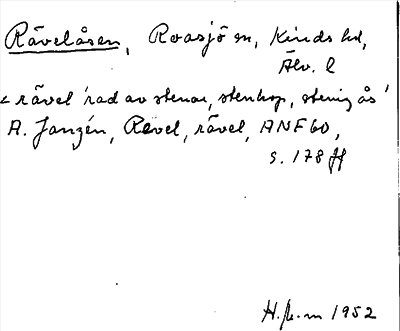 Rävelåsen, Roasjö sn, Kinds hd,
Älv. l
< rävel 'rad av stenar, stenhop, stenig ås'
A. Janzén, Revel, rävel, ANF 60,
s. 178 ff
1952